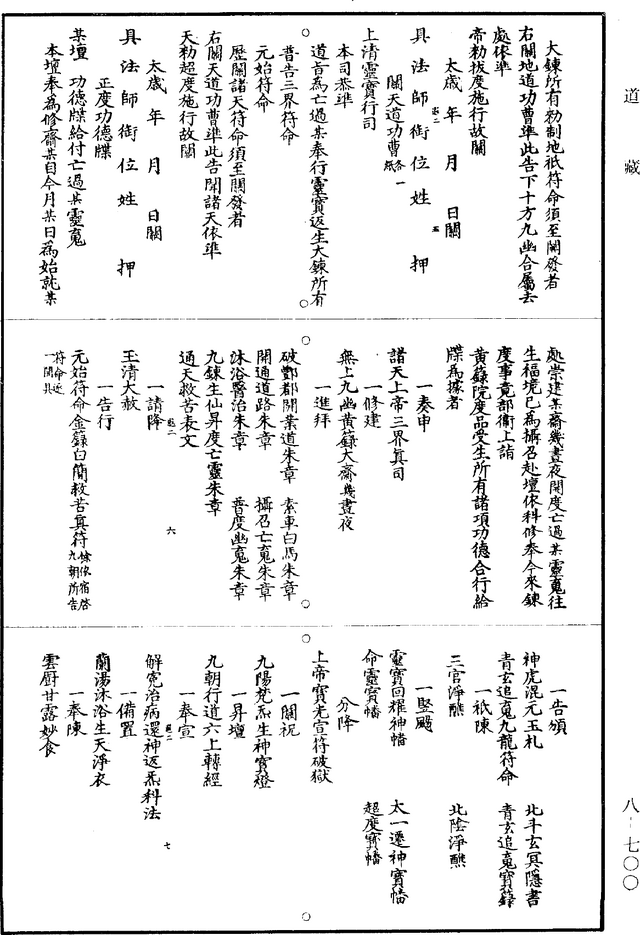 道藏
大鍊所有勑制地祇符命須至關發者
右關地道功曹準此告下十方九幽合屬去
處依準
帝勑拔度施行故關
太歲年月日關
具法師銜位姓押
關天道功曹各一紙
上清靈寶行司
本司恭準
道旨爲亡過某奉行靈寶返生大鍊所有
普告三界符命
元始符命
歷關諸天符命須至關發者
右關天道功曹準此告聞諸天依準
天勑超度施行故關
太歲年月日關
具法師銜位姓押
正度功德牒
某壇功德牒給付亡過某靈䰟
本壇奉爲修齋某自今月某日爲始就某
處崇建某齋幾晝夜開度亡過某靈䰟往
生福境已爲攝召赴壇依科修奉今來鍊
度事竟部衞上詣
黃籙院度品受生所有諸項功德合行給
牒爲據者
一奏申
諸天上帝三界眞司
一修建
無上九幽黃籙大齋幾晝夜
一進拜
破酆都開業道朱章 素車白馬朱章
開通道路朱章 攝召亡䰟朱章
沐浴醫治朱章 普度幽䰟朱章
九鍊生仙昇度亡靈朱章
通天救苦表文
一請降
玉清大赦
一告行
元始符命金籙白簡救苦眞符餘依宿啓九朝所告
符命逐一開具
六
一告頒
神虎混元玉札 北斗玄冥隱書
青玄追䰟九龍符命 青玄追䰟寶籙
一祇陳
三官淨醮 北陰淨醮
一豎颺
靈寶回耀神幡 太一遷神寶幡
命靈寶幡 超度寶幡
分降
上帝寶光宣符破獄
一關祝
九陽梵炁生神寶燈
一昇壇
九朝行道六上轉經
一奉宣
解寃治病還神返炁科法
一備置
蘭湯沐浴生天淨衣
一奉陳
雲厨甘露妙食
七
八-七〇〇